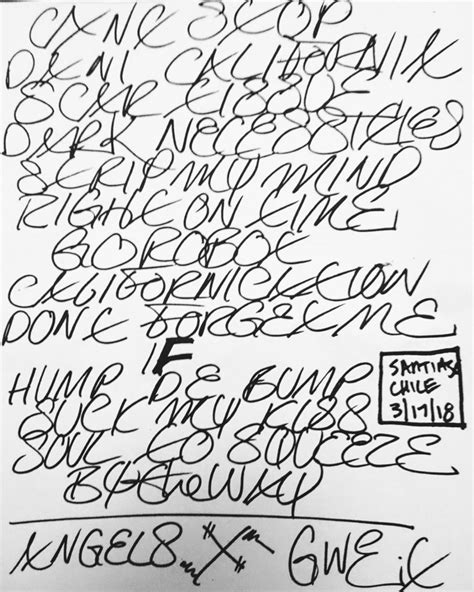 CAN'T STOP
DANI CALIFORNIA
SCAR TISSUE
DARK NECESSITIES
STRIP MY MIND
RIGHT ON TIME
GO ROBOT
CALIFORNICATION
DONT FORGET ME
IF
HUMP DE BUMP
SUCK MY KISS
SOUL TO SQUEEZE
BY THE WAY
SANTIAGO
CHILE
3/17/18
ANGELS X GWEiX